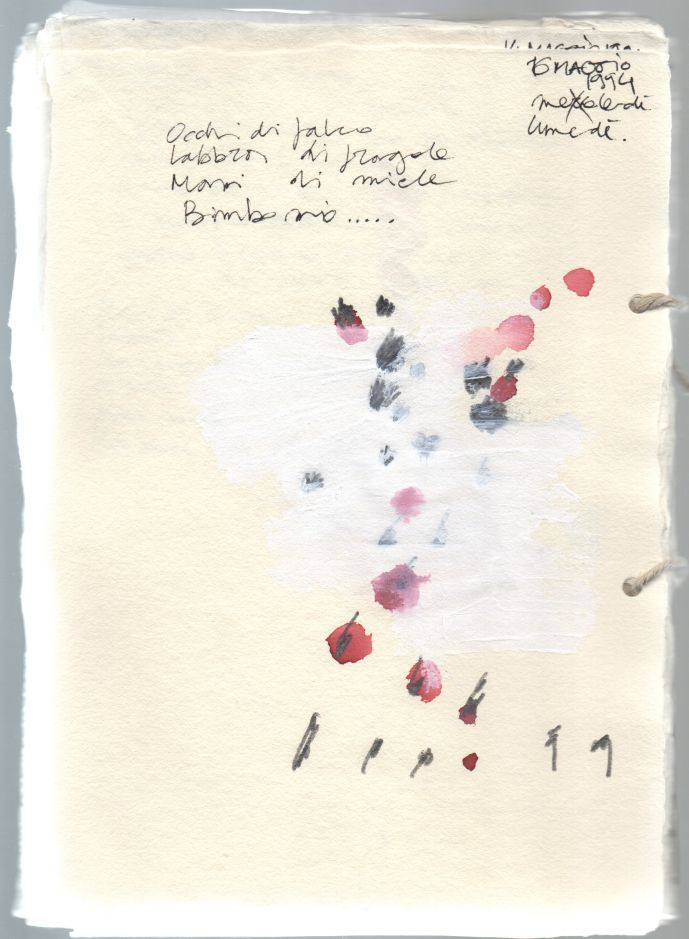 16 MAGGIO
1994
lunedì.
Occhi di falco
Labbra di fragole
Mani di miele
Bimbo mio.....